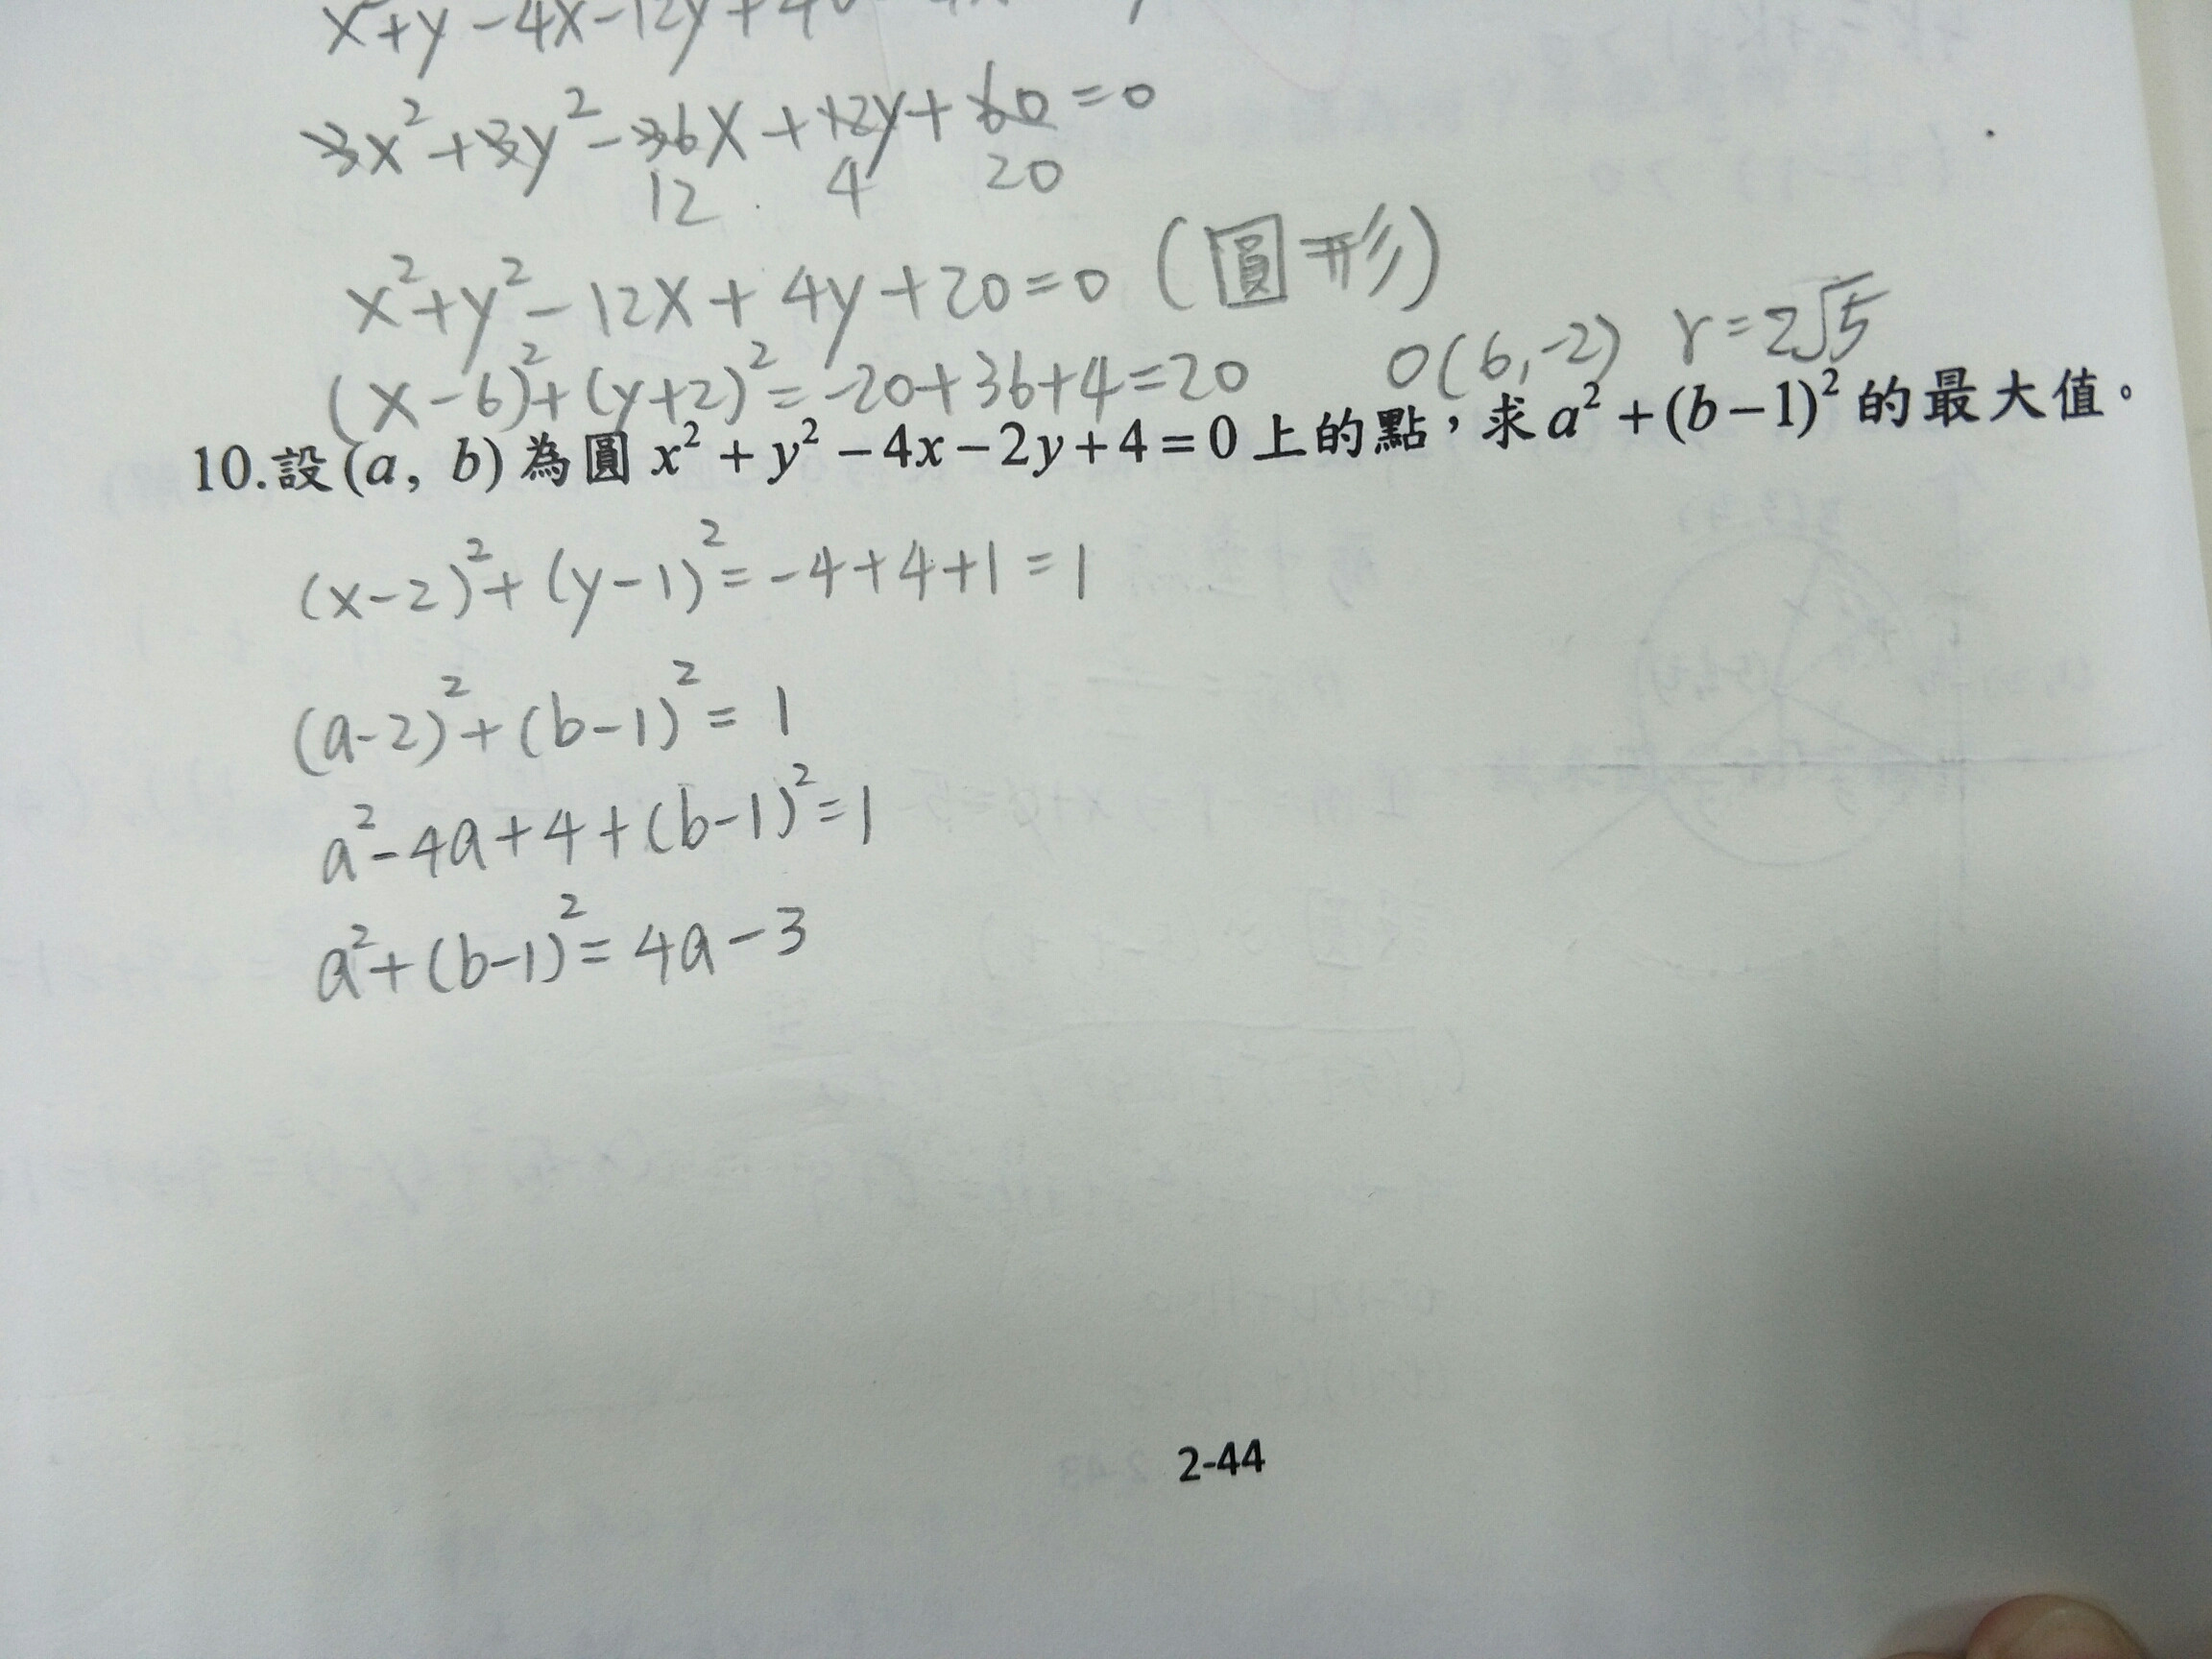 x²+y -4x-12y+4
3x²+3y²-36x+12y+60=0
12 4 20
x²+y²-12x+4y+20=0 (圓形)
(x-6)²+(y+2)²=-20+36+4=20 O(6,-2) r=2√5
10.設(a, b)為圓 x²+y²-4x-2y+4=0上的點,求a²+(b-1)²的最大值。
(x-2)²+(y-1)²=-4+4+1=1
(a-2)²+(b-1)²=1
a²-4a+4+(b-1)²=1
a²+(b-1)²=4a-3
2-44